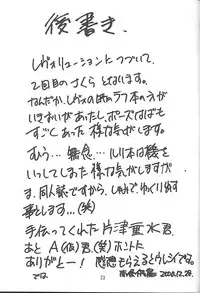 後書き.
レヴォリューションについて、
2回目のさくら となります。
なんだか、レヴォのほのラフ本の方が
いきおいがあったし、ポーズなんばも
すごく あった 様な気がします。
むう… 無念… るり本は機を
いっしてしまった様な気がしますが
ま、同人誌ですから、しゅみで、ゆっくり
します…(笑)
手伝ってくれた 片津垂水君、
あと A(仮)君、(笑) ホントに
ありがとー! 感想もらえるとうれしいです。
では
2000.12.28.
23